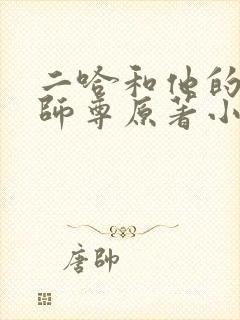 二哈和他的
師尊原著小
唐帥